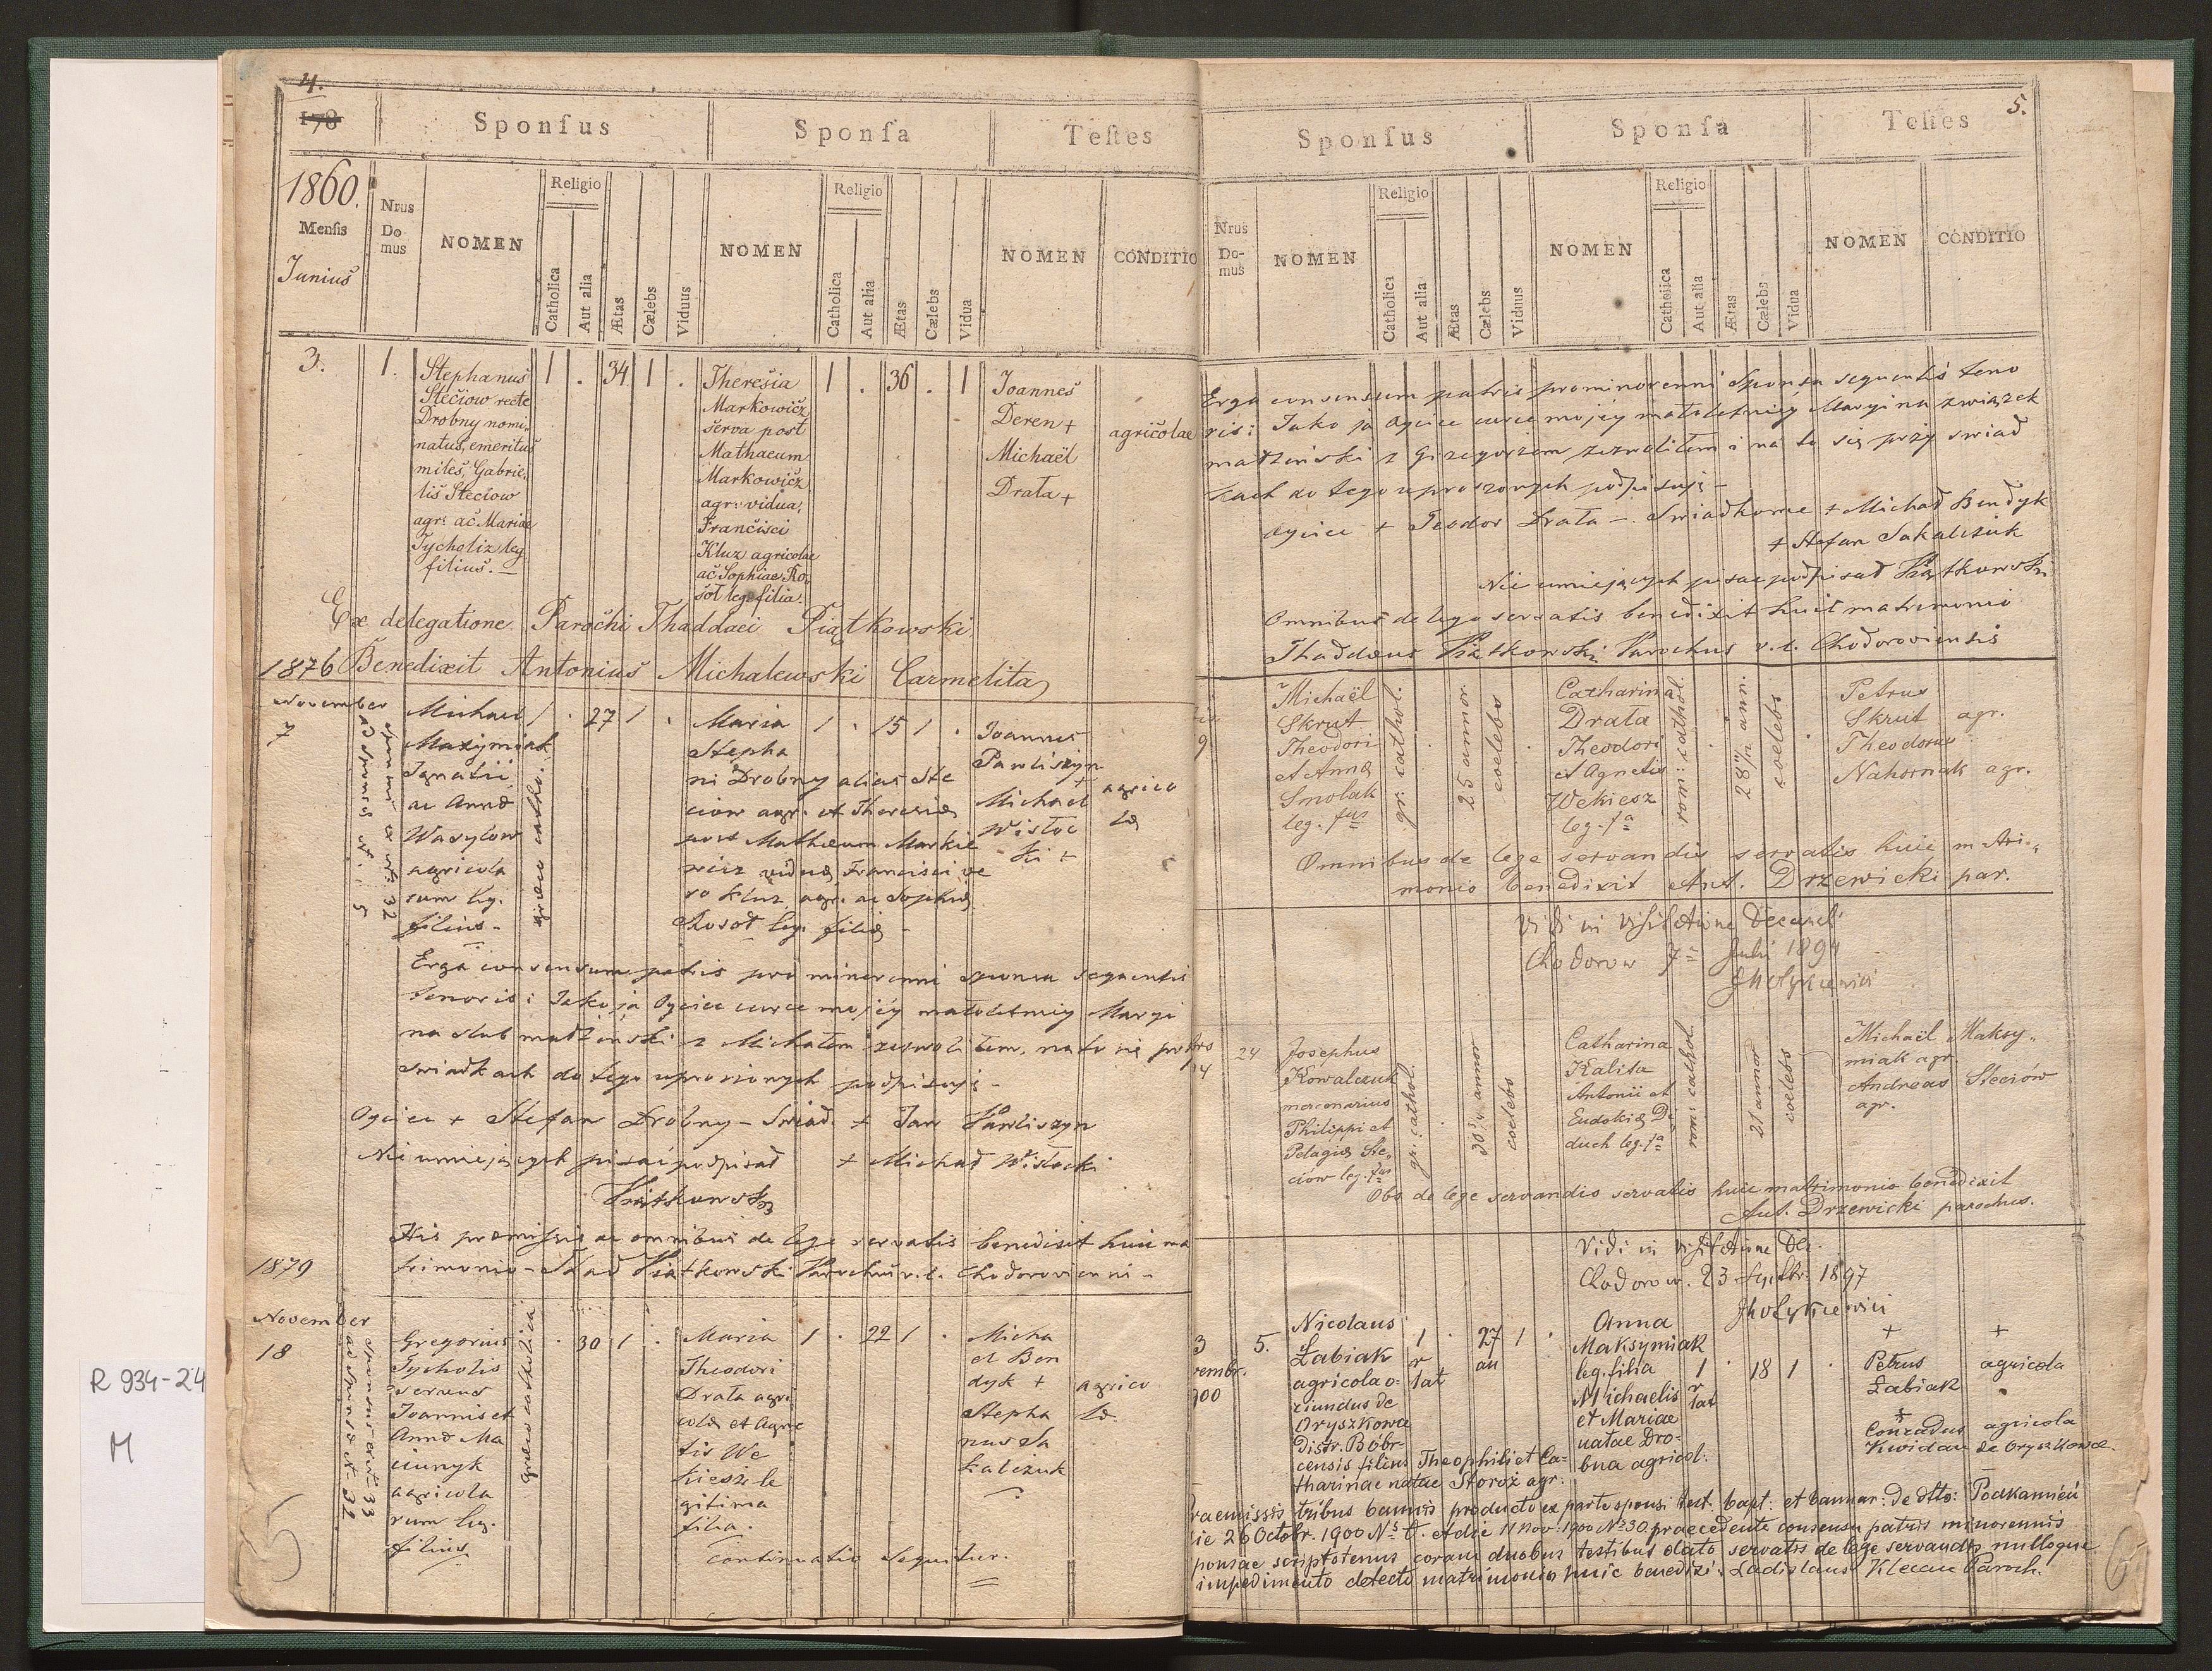 4.
178
Sponſus Sponſa Teſtes
1860.
Menſis
Junius
Nrus Do mus
NOMEN
Religio
Catholica
Aut alia
Ætas
Cælebs
Viduus
NOMEN
Religio
Catholica
Aut alia
Ætas
Cælebs
Vidua
NOMEN
CONDITIO
3. 1.
Stephanus
Steciow recte
Drobny nomi-
natus, emeritus
miles, Gabrie-
lis Steciow
agr: ac Mariae
Tycholiz leg
filius. —
1 . 34 1 .
Theresia
Markowicz
serva post
Mathaeum
Markowicz
agr: vidua,
Francisci
Kluz agricolae
ac Sophiae Ro-
soł leg. filia.
1 . 36 . 1
Joannes
Deren +
Michaël
Drata +
agricolae
Ex delegatione Parochi Thaddaei Piątkowski
Benedixit Antonius Michalewski Carmelita
1876
November
7
Michael
Maxymiak
Ignatii
ac Annæ
Wasylow
agricola
rum leg.
filius -
1 . 27 1 .
Maria
Stepha
ni Drobny alias Ste
ciow agr. et Theresiæ
post Mathæum Markie
wicz viduæ, Francisci ve
ro Kluz agr. ac Sophiæ
Rosoł leg. filiæ -
1 . 15 1 .
Joannes
Pawliszyn
+
Michael
Wisłoc
ki +
agrico
læ
Erga consensum patris pro minorenni sponsa sequentis
tenoris: Jako ja Ojciec curce mojéj małoletniéj Maryi
na slub małżenski z Michałem zezwoliłem, na to się przy
swiadkach do tego uproszonych podpisuję -
Ojciec + Stefan Drobny - Swiad. + Jan Pawliszyn
Nie umiejących pisać podpisał + Michał Wisłocki
Piątkowski
His præmissis ac omnibus de lege servatis benedixit huic ma
trimonio - Thad Piątkowski Parochus r.l. Chodoroviensis -
1879
November
18
Gregorius
Tycholis
servus
Joannis et
Annæ Ma
ciunyk
agricola
rum leg.
filius
græco catholica
. 30 1 .
Maria
Theodori
Drata agri
colæ et Agne
tis We
kiesz le
gitima
filia.
1 . 22 1 .
Micha
el Ben
dyk +
Stepha
nus Sa
kalczuk
agrico
læ
continuatio sequitur.
R 934-24
M
5
5.
Sponſus Sponſa Teſtes
Nrus Do- mus
NOMEN
Religio
Catholica
Aut alia
Ætas
Cælebs
Viduus
NOMEN
Religio
Catholica
Aut alia
Ætas
Cælebs
Vidua
NOMEN
CONDITIO
Erga consensum patris pro minorenni Sponsa sequentis teno
ris: Jako ja Ojciec curce mojéj małoletniéj Maryi na związek
małżenski z Grzegorzem zezwoliłem i na to się przy swiad
kach do tego uproszonych podpisuję -
Ojciec + Teodor Drata -. Swiadkowie + Michał Bendyk
+ Stefan Sakalczuk
Nie umiejących pisac podpisał Piątkowski
Omnibus de lege servatis benedixit huic matrimonio
Thaddæus Piątkowski Parochus r.l. Chodoroviensis
9
Michaël
Skrut
Theodori
et Annæ
Smolak
leg. fus
gr: cathol.
25 annor.
coelebs
Catharina
Drata
Theodori
et Agnetis
Wekiesz
leg. fa
rom: cathol.
28 ann.
coelebs
Petrus
Skrut agr.
Theodorus
Nahornak agr.
Omnibus de lege servandis servatis huic matri-
monio benedixit Ant. Drzewicki par.
Vidi in visitatione Decanali
Chodorow 7 Julii 1894
24
Josephus
Kowalczuk
mercenarius
Philippi et
Pelagiæ Ste-
ciow leg. fus
gr: cathol.
30 annor
coelebs
Catharina
Kalita
Antonii et
Eudokiæ Di
duch leg. fa
rom: cathol.
21 annor
coelebs
Michaël Maksy-
miak agr
Andreas Steciów
agr.
Obs de lege servandis servatis huic matrimonio benedixit
Ant. Drzewicki parochus.
Vidi in visitatione Dec.
Chodorow. 23 Septbr. 1897
3
vembr.
900
5.
Nicolaus
Łabiak
agricola o-
riundus de
Oryszkowce
Distr. Bóbr-
censis filius Theophili et Ca-
tharinae natae Storoż agr.
1 . 27 1 .
r lat
an
Anna
Maksymiak
leg. filia
Michaelis
et Mariae
natae Dro-
bna agricol:
1 . 18 1 .
r lat
+ +
Petrus agricola
Łabiak
+
Conradus agricola
Kwidan de Oryszkowce.
raemissis tribus bannis producto ex parte sponsi test. bapt: et bannor: de dtto: Podkamień
ie 26 Octobr. 1900 No 6. et die 11 Nov. 1900 No 30 praecedente consensu patris minorennis
ponsae scriptotenus coram duobus testibus dato servatis de lege servandis nulloque
impedimento detecto matrimonio huic benedixi. Ladislaus Klecan Paroch.
6